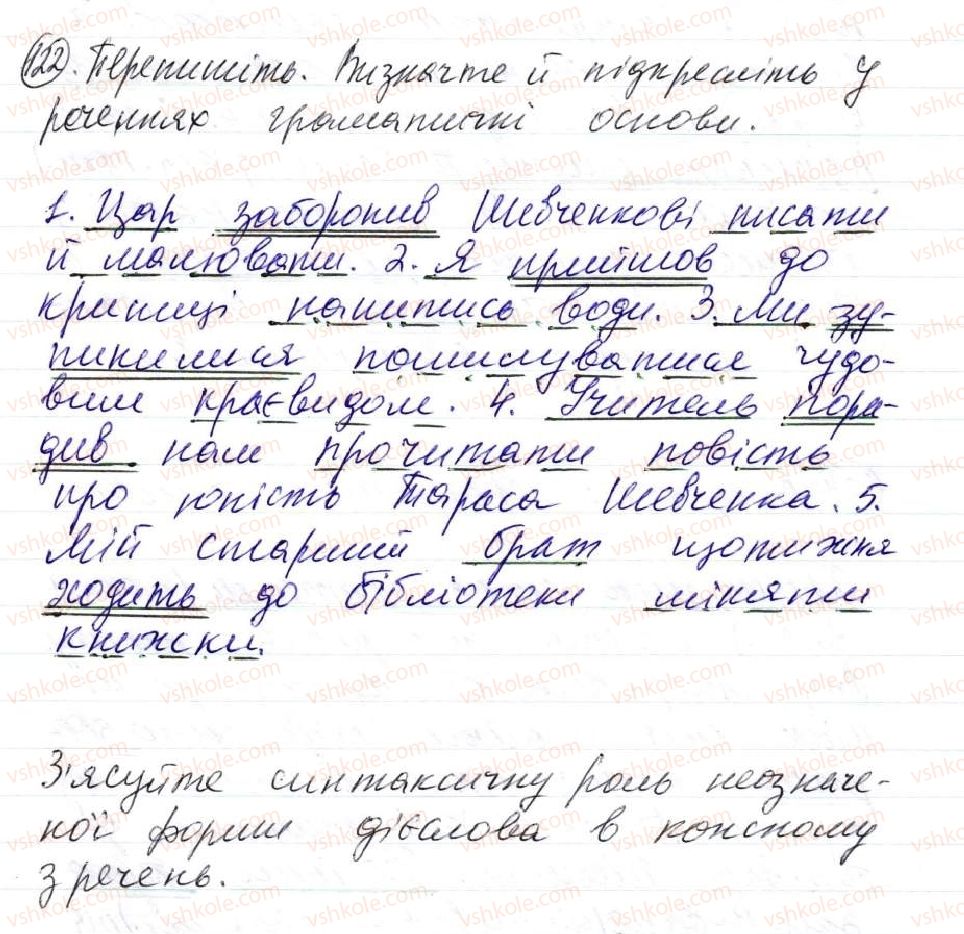 122. Перепишіть. Визначте й підкресліть у
реченнях граматичні основи.
1. Цар заборонив Шевченкові писати
й малювати. 2. Я прийшов до
криниці напитись води. 3. Ми зу-
пинилися помилуватися чудо-
вим краєвидом. 4. Учитель пора-
див нам прочитати повість
про юність Тараса Шевченка. 5.
Мій старший брат щотижня
ходить до бібліотеки міняти
книжки.
З'ясуйте синтаксичну роль неозначе-
ної форми дієслова в кожному
з речень.